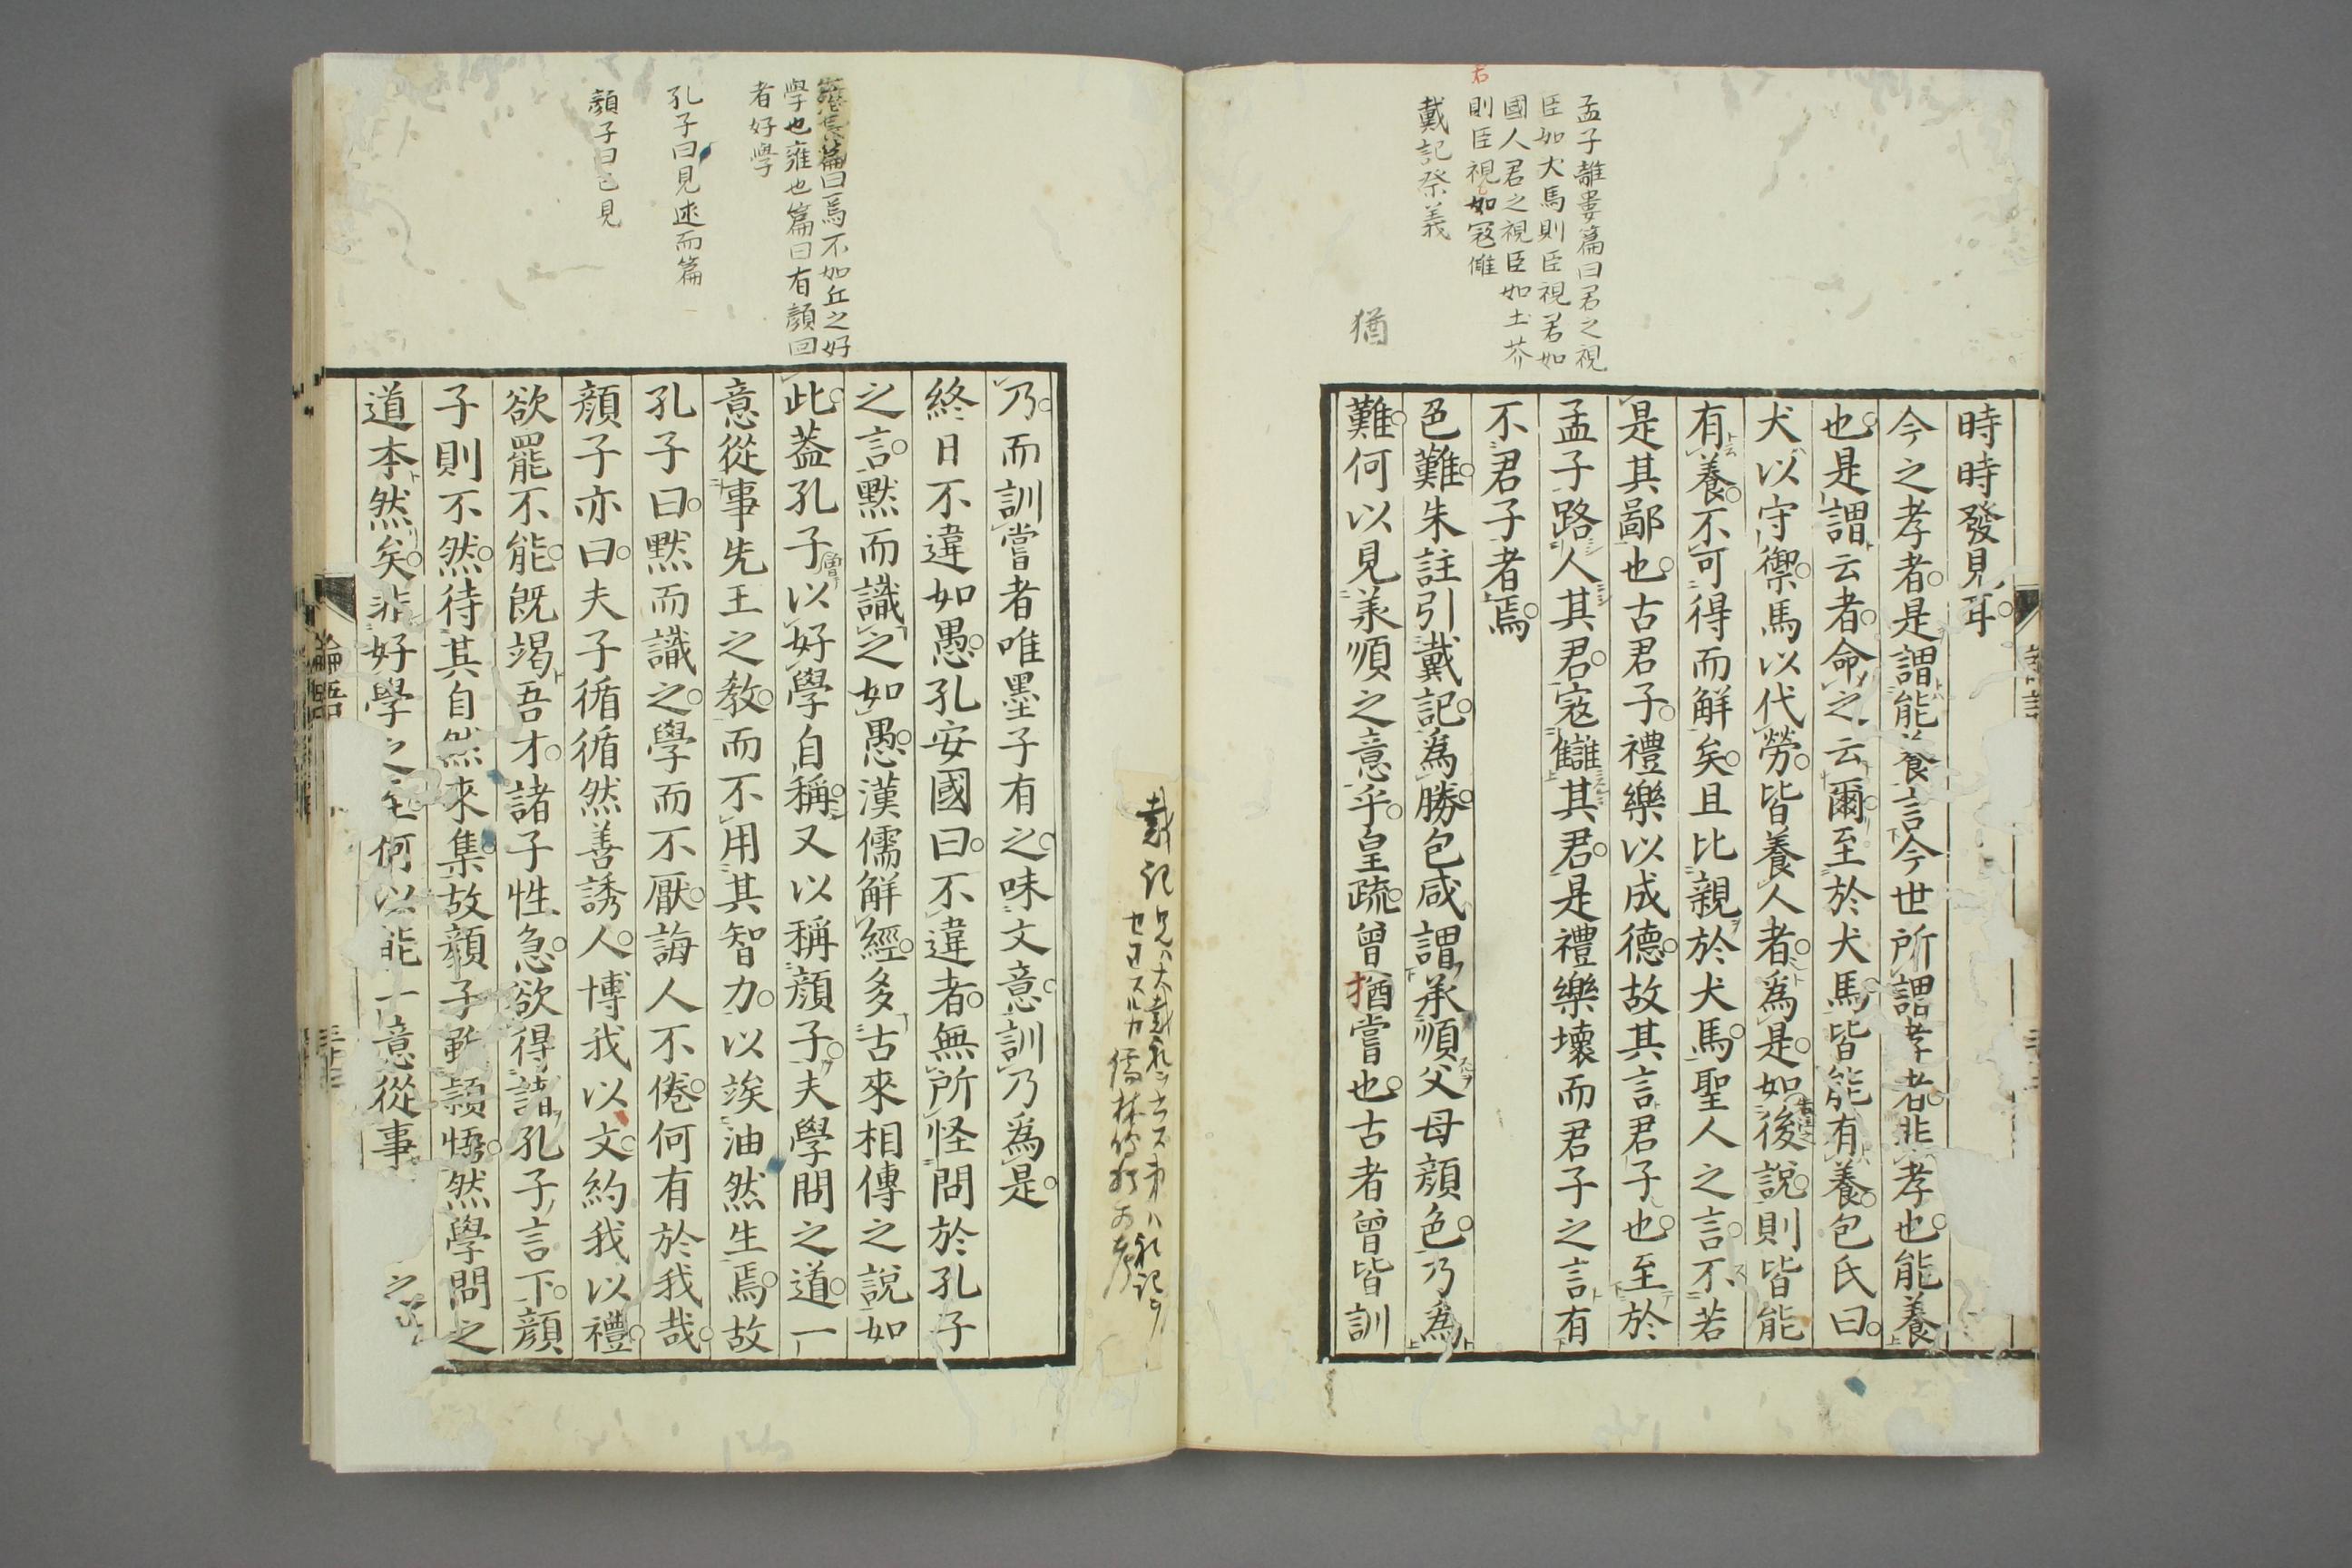 孟子離婁篇曰君之視
臣如犬馬則臣視君如
國人君之視臣如土芥
則臣視如寇讎
君
戴記祭義
猶
時時發見耳
今之孝者是謂能養言今世所謂孝者非孝也能養
也是謂云者命之云爾至於犬馬皆能有養包氏曰
犬以守禦馬以代勞皆養人者為是如後說則皆能
有養不可得而解矣且比親於犬馬聖人之言不若
是其鄙也古君子禮樂以成德故其言君子也至於
孟子路人其君寇讎其君是禮樂壞而君子之言有
不君子者焉
色難朱註引戴記為勝包咸謂承順父母顏色乃為
難何以見承順之意乎皇疏曾猶嘗也古者曾皆訓
曰焉不如丘之好
學也雍也篇曰有顏回
者好學
孔子曰見述而篇
顏子曰已見
乃而訓嘗者唯墨子有之味文意訓乃為是
終日不違如愚孔安國曰不違者無所怪問於孔子
之言默而識之如愚漢儒解經多古來相傳之說如
此蓋孔子以好學自稱又以稱顏子夫學問之道一
意從事先王之教而不用其智力以竢油然生焉故
孔子曰默而識之學而不厭誨人不倦何有於我哉
顏子亦曰夫子循循然善誘人博我以文約我以禮
欲罷不能既竭吾才諸子性急欲得諸孔子言下顏
子則不然待其自然來集故顏子雖穎悟然學問之
道本然矣非好學之至何以能一意從事
論語